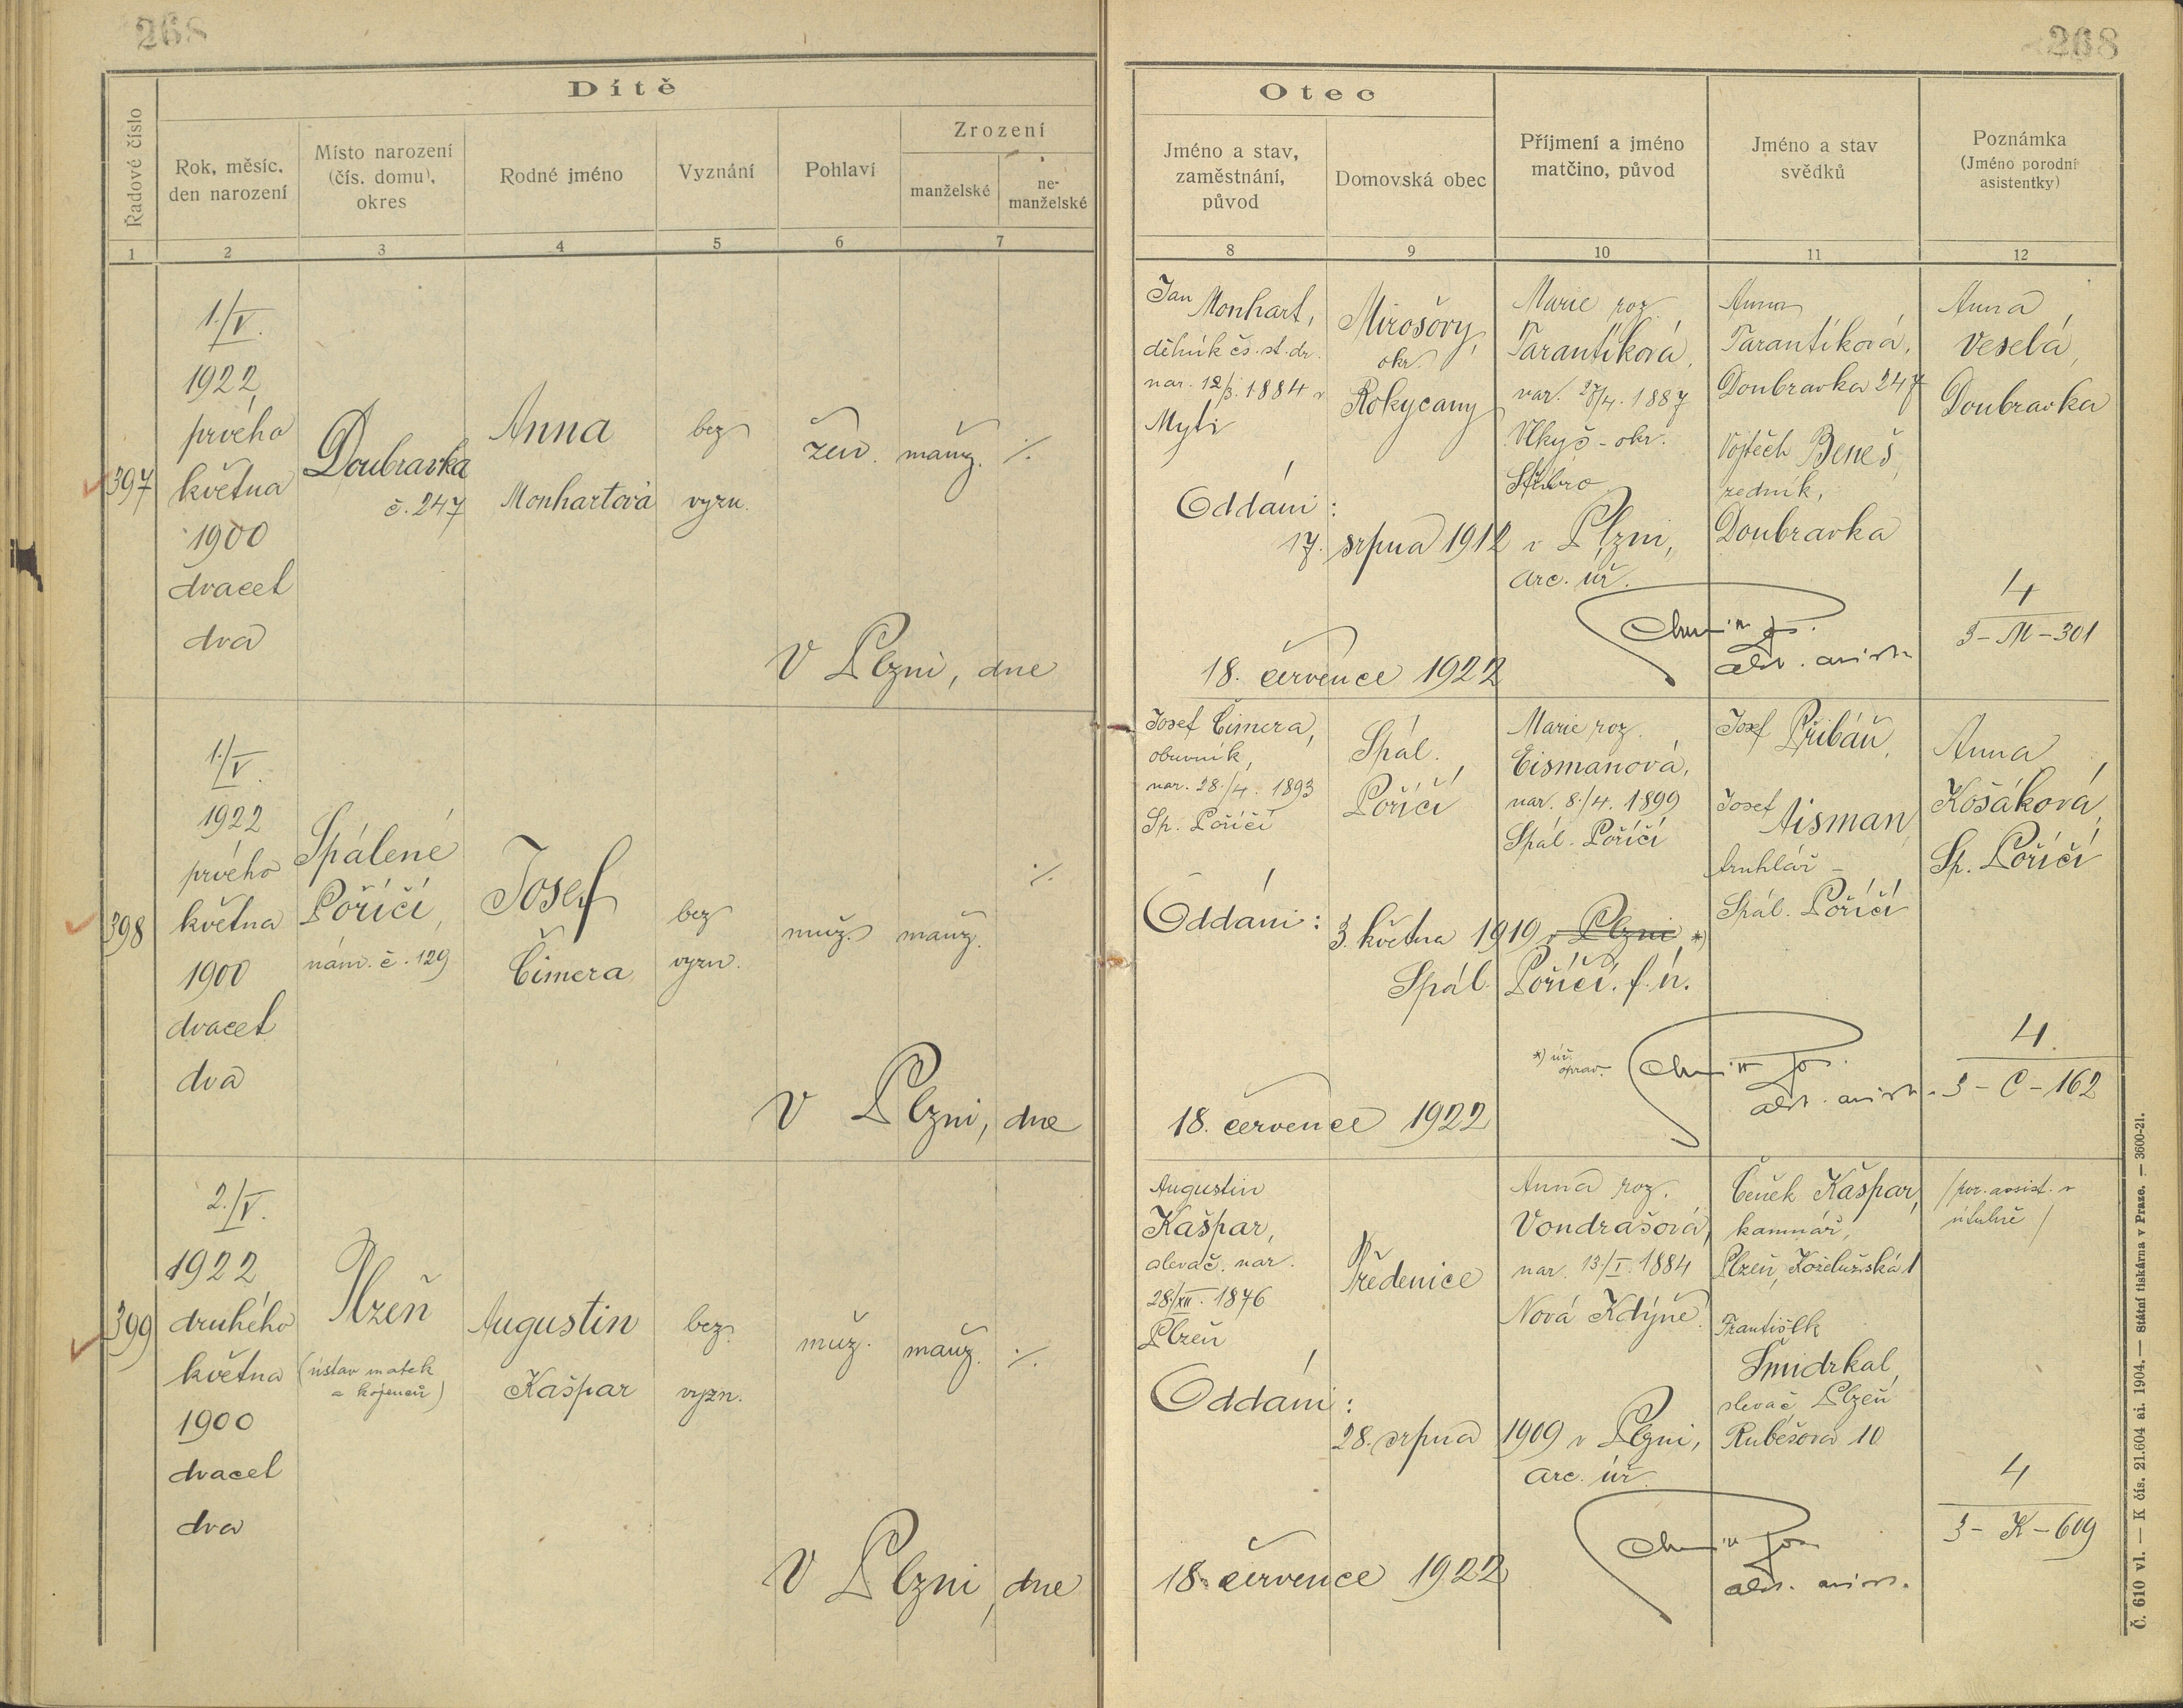 268
268
Dítě
Řadové číslo
Rok, měsíc,
den narození
Místo narození
(čís. domu),
okres
Rodné jméno
Vyznání
Pohlaví
Zrození
manželské
ne-
manželské
1
2
3
4
5
6
7
Otec
Jméno a stav,
zaměstnání,
původ
Domovská obec
Příjmení a jméno
matčino, původ
Jméno a stav
svědků
Poznámka
(Jméno porodní
asistentky)
8
9
10
11
12
397
1./V.
1922
prvého
května
1900
dvacet
dva
Doubravka
č. 247
Anna
Monhartová
bez
vyzn.
žen.
manž.
·/.
V Plzni, dne
Jan Monhart,
dělník čs. st. dr.
nar. 12/3. 1884 v
Mýti
Mirošovy,
okr.
Rokycany
Marie roz.
Tarantíková,
nar. 27/4. 1887
Vlkyš - okr.
Stříbro
Anna
Tarantíková,
Doubravka 247
Vojtěch Beneš,
zedník,
Doubravka
Anna
Veselá,
Doubravka
Oddáni:
17. srpna 1912 v Plzni,
arc. úř.
18. července 1922
4
3-M-301
398
1./V.
1922
prvého
května
1900
dvacet
dva
Spálené
Poříčí,
nám. č. 129
Josef
Čimera
bez
vyzn.
muž.
manž.
·/.
V Plzni, dne
Josef Čimera,
obuvník,
nar. 28./4. 1893
Sp. Poříčí
Spál.
Poříčí
Marie roz.
Eismanová,
nar. 8./4. 1899
Spál. Poříčí
Josef Přibáň,
Josef
Aisman,
truhlář -
Spál. Poříčí
Anna
Košáková,
Sp. Poříčí
Oddáni:
3. května 1919 v Plzni *)
Spál. Poříčí. f. ú.
*) úř.
oprav.
18. července 1922
4.
3-C-162
399
2./V.
1922
druhého
května
1900
dvacet
dva
Plzeň
(ústav matek
a kojenců)
Augustin
Kašpar
bez
vyzn.
muž.
manž.
·/.
V Plzni, dne
Augustin
Kašpar,
slevač. nar.
28./XII. 1876
Plzeň
Předenice
Anna roz.
Vondrašová,
nar. 13./I. 1884
Nová Kdýně
Čeněk Kašpar,
kamnář,
Plzeň, Koželužská 1
František
Šmidrkal,
slevač Plzeň
Rubešova 10
/por. assist. v
útulně/
Oddáni:
28. srpna 1909 v Plzni,
arc. úř.
18. července 1922
4
3-K-609
Č. 610 vl. — K čís. 21.604 ai. 1904. — Státní tiskárna v Praze. — 3600-21.